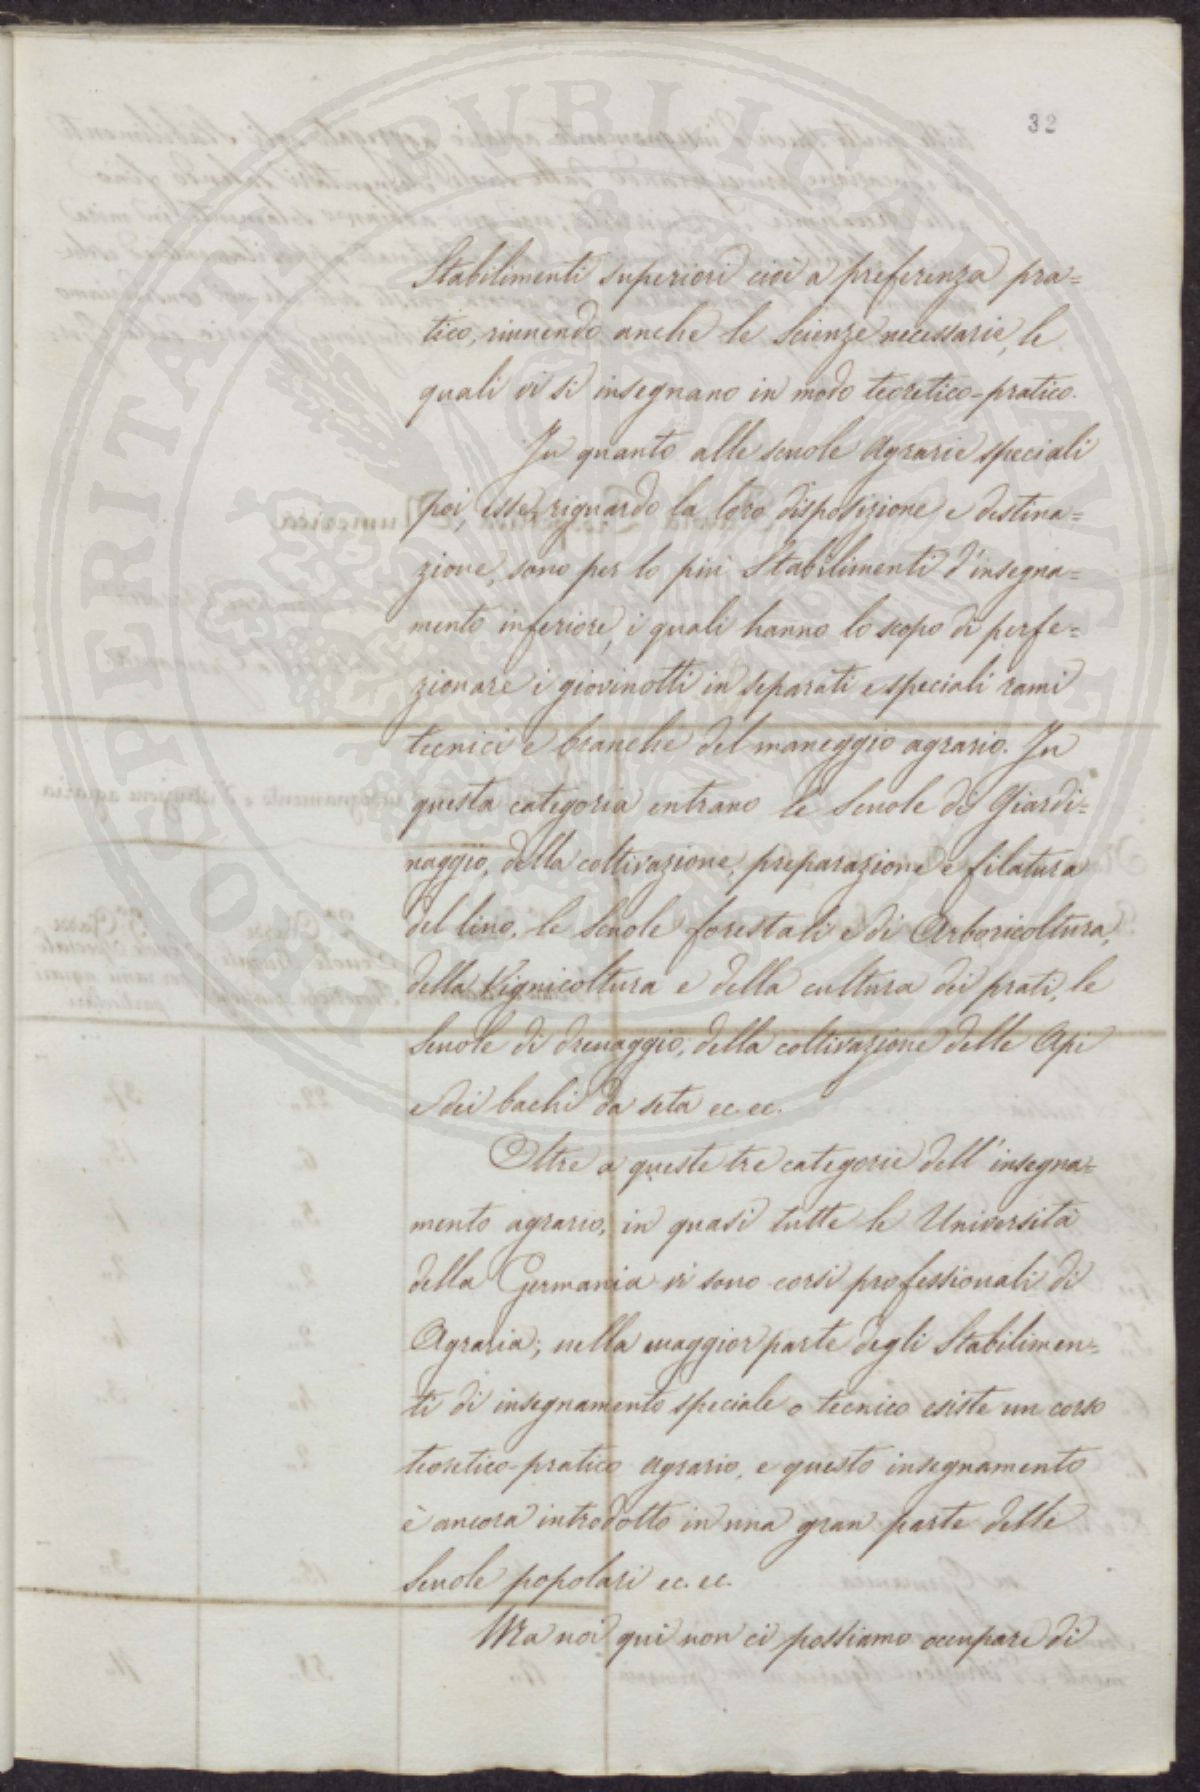 32
Stabilimenti superiori cioè a preferenza pra=
tico, riunendo anche le Scienze necessarie, le
quali vi si insegnano in modo teoretico-pratico.
In quanto alle scuole Agrarie speciali
poi, esse, riguardo la loro disposizione e destina=
zione, sono per lo più Stabilimenti d'insegna=
mento inferiore, i quali hanno lo scopo di perfe=
zionare i giovinotti in separati e speciali rami
tecnici e branche del maneggio agrario. In
questa categoria entrano le Scuole di Giardi=
naggio, della coltivazione, preparazione e filatura
del lino, le Scuole forestali e di Arboricoltura,
della Vignicoltura e della cultura dei prati, le
Scuole di drenaggio, della coltivazione delle Api
e dei bachi da seta ec. ec.
Oltre a queste tre categorie dell'insegna=
mento agrario, in quasi tutte le Università
della Germania vi sono corsi professionali di
Agraria; nella maggior parte degli Stabilimen=
ti di insegnamento speciale o tecnico esiste un corso
teoretico-pratico Agrario, e questo insegnamento
è ancora introdotto in una gran parte delle
Scuole popolari ec. ec.
Ma noi qui non ci possiamo occupare di
PROSPERITATI PUBLICAE AUGENDAE